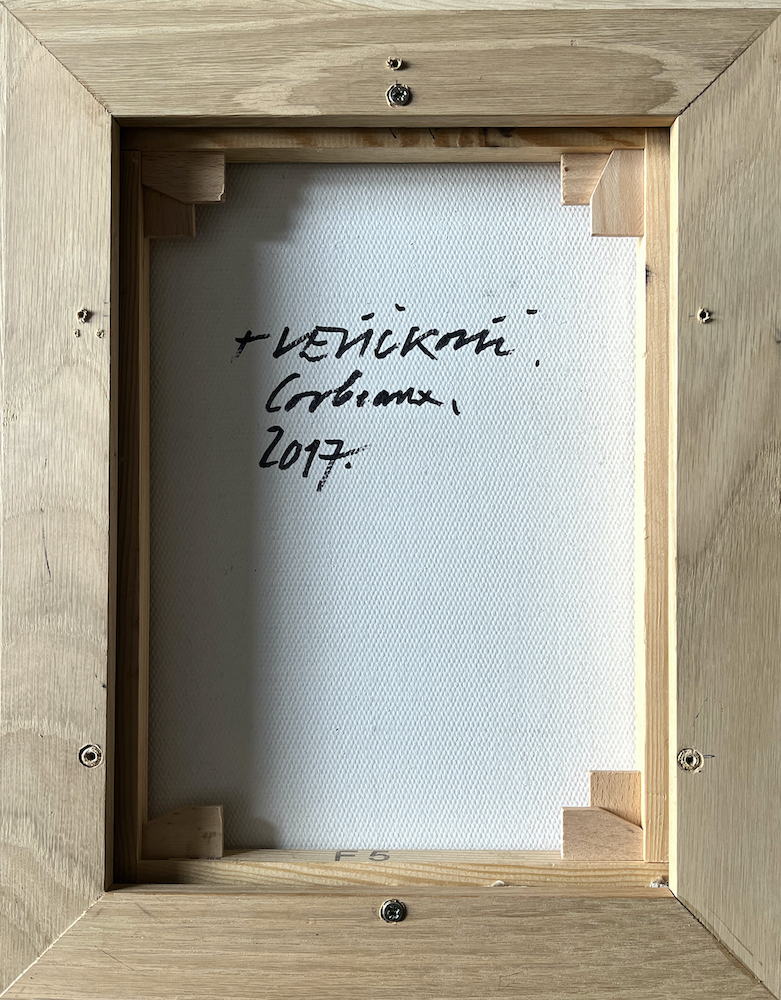 + VELIČKOVIĆ.
Corbeaux,
2017.
F 5